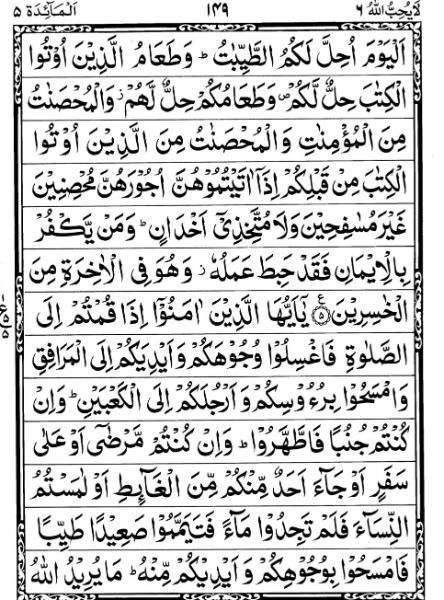 لَا يُحِبُّ اللهُ ٦ ١٤٩ اَلْمَآئِدَة ٥
اَلْيَوْمَ اُحِلَّ لَكُمُ الطَّيِّبٰتُ ؕ وَطَعَامُ الَّذِيْنَ اُوْتُوا
الْكِتٰبَ حِلٌّ لَّكُمْ ۪ وَطَعَامُكُمْ حِلٌّ لَّهُمْ ؗ وَالْمُحْصَنٰتُ
مِنَ الْمُؤْمِنٰتِ وَالْمُحْصَنٰتُ مِنَ الَّذِيْنَ اُوْتُوا
الْكِتٰبَ مِنْ قَبْلِكُمْ اِذَاۤ اٰتَيْتُمُوْهُنَّ اُجُوْرَهُنَّ مُحْصِنِيْنَ
غَيْرَ مُسٰفِحِيْنَ وَلَا مُتَّخِذِيْۤ اَخْدَانٍ ؕ وَمَنْ يَّكْفُرْ
بِالْاِيْمَانِ فَقَدْ حَبِطَ عَمَلُهٗ ؗ وَهُوَ فِي الْاٰخِرَةِ مِنَ
الْخٰسِرِيْنَ ۝٥ ع يٰۤاَيُّهَا الَّذِيْنَ اٰمَنُوْۤا اِذَا قُمْتُمْ اِلَى
الصَّلٰوةِ فَاغْسِلُوْا وُجُوْهَكُمْ وَاَيْدِيَكُمْ اِلَى الْمَرَافِقِ
وَامْسَحُوْا بِرُءُوْسِكُمْ وَاَرْجُلَكُمْ اِلَى الْكَعْبَيْنِ ؕ وَاِنْ
كُنْتُمْ جُنُبًا فَاطَّهَّرُوْا ؕ وَاِنْ كُنْتُمْ مَّرْضٰۤى اَوْ عَلٰى
سَفَرٍ اَوْ جَآءَ اَحَدٌ مِّنْكُمْ مِّنَ الْغَآئِطِ اَوْ لٰمَسْتُمُ
النِّسَآءَ فَلَمْ تَجِدُوْا مَآءً فَتَيَمَّمُوْا صَعِيْدًا طَيِّبًا
فَامْسَحُوْا بِوُجُوْهِكُمْ وَاَيْدِيْكُمْ مِّنْهُ ؕ مَا يُرِيْدُ اللهُ